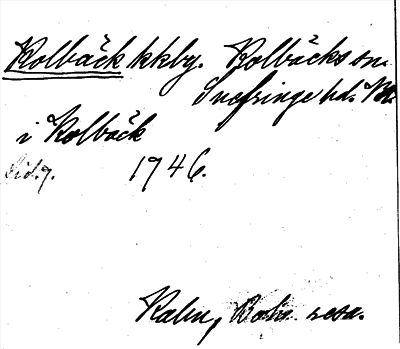 Kolbäck kkby. Kolbäcks sn.
Snefringe hd.
i Kolbäck
Sid. 7. 1946.
Kalm, resa.